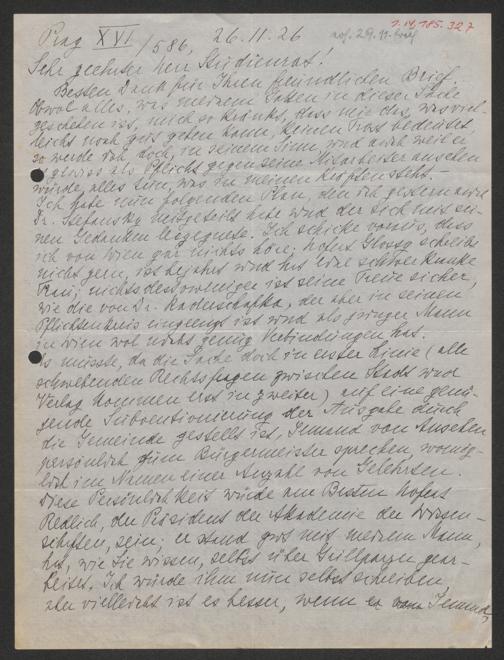 1.IV.185.327
Prag XVI/586, 26.11.26
Sehr geehrter Herr Studienrat!
Besten Dank für Ihren freundlichen Brief.
Obwol alles, was meinem Gatten in dieser Sache
geschehen ist, mich so kränkt, dass mir das, was viel-
leicht noch gut gehen kann, keinen Trost bedeutet,
so werde ich doch, in seinem Sinn, und auch weil er
es gewiss als Pflicht gegen seine Mitarbeiter ansehen
würde, alles tun, was in meinen Kräften steht. –
Ich habe nun folgenden Plan, den ich gestern auch
Dr. Stefansky mitgeteilt habe und der sich mit sei-
nen Gedanken begegnete. Ich schicke voraus, dass
ich von Wien gar nichts höre; Hofrat Glossy schreibt
nicht gern, ist bejahrt und hat eine schwer kranke
Frau; nichtsdestoweniger ist seine Treue sicher,
wie die von Dr.              , der aber in seinen
Pflichtenkreis eingeengt ist und als junger Mann
in Wien wol nicht genug Verbindungen hat.
Es müsste, da die Sache doch in erster Linie (alle
schwebenden Rechtsfragen zwischen Stadt und
Verlag kommen erst in zweiter) auf eine genü-
gende Subventionierung der Ausgabe durch
die Gemeinde gestellt ist, Jemand von Ansehen
persönlich zum Bürgermeister sprechen, womög-
lich im Namen einer Anzahl von Gelehrten.
Diese Persönlichkeit würde am Besten Hofrat
Redlich, der Präsident der Akademie der Wissen-
schaften, sein; er stand gut mit meinem Mann,
hat, wie Sie wissen, selbst über Grillparzer gear-
beitet. Ich würde ihm nun selbst schreiben,
aber vielleicht ist es besser, wenn Jemand,